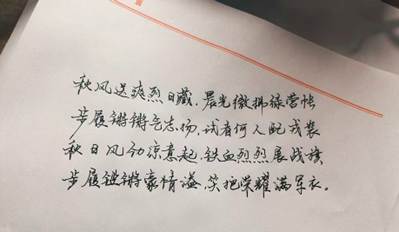 秋风送爽烈日藏，晨光微拂绿营帐
步履锵锵气志扬，试看何人配戎装
秋日风劲凉意起，铁血烈烈展战旗
步履锵锵豪情溢，笑把荣耀满军衣。